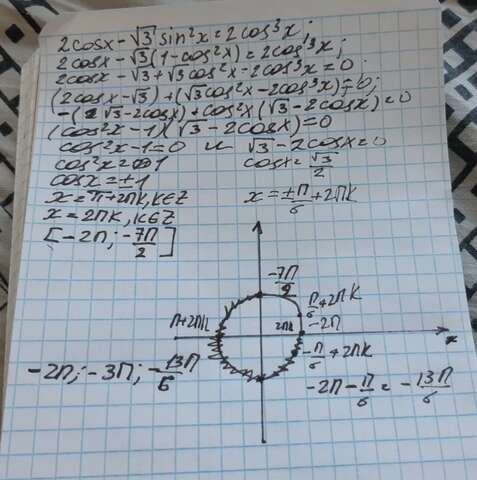 2cosx - √3 sin²x = 2cos³x;
2cosx - √3(1-cos²x) = 2cos³x;
2cosx - √3 + √3cos²x - 2cos³x = 0;
(2cosx - √3) + (√3cos²x - 2cos³x) = 0;
-(√3 - 2cosx) + cos²x(√3 - 2cosx) = 0
(cos²x - 1)(√3 - 2cosx) = 0
cos²x - 1 = 0 и √3 - 2cosx = 0
cos²x = 1 cosx = √3/2
cosx = ±1
x = ±π/6 + 2πk
x = π + 2πk, k∈Z
x = 2πk, k∈Z
[-2π; -7π/2]
-7π/2
π/6 + 2πk
π + 2πk 2πk -2π x
-π/6 + 2πk
-2π; -3π; -13π/6
-2π - π/6 = -13π/6